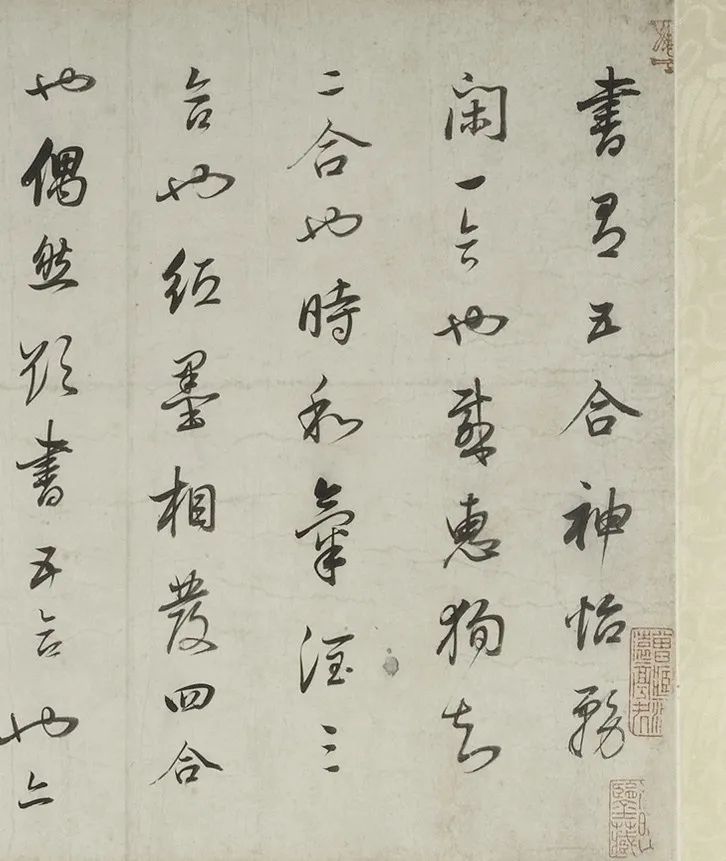 書有五合神怡務
閑一合也感惠徇知
二合也時和氣潤三
合也紙墨相發四合
也偶然欲書五合也